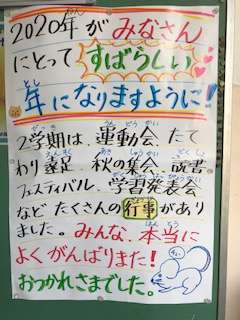 2020年がみなさん
にとって すばらしい
年になりますように!
2学期は、運動会、たて
わり遠足、秋の集会、読書
フェスティバル、学習発表会
など たくさんの行事があり
ました。みんな、本当に
よくがんばりまた!
おつかれさまでした。